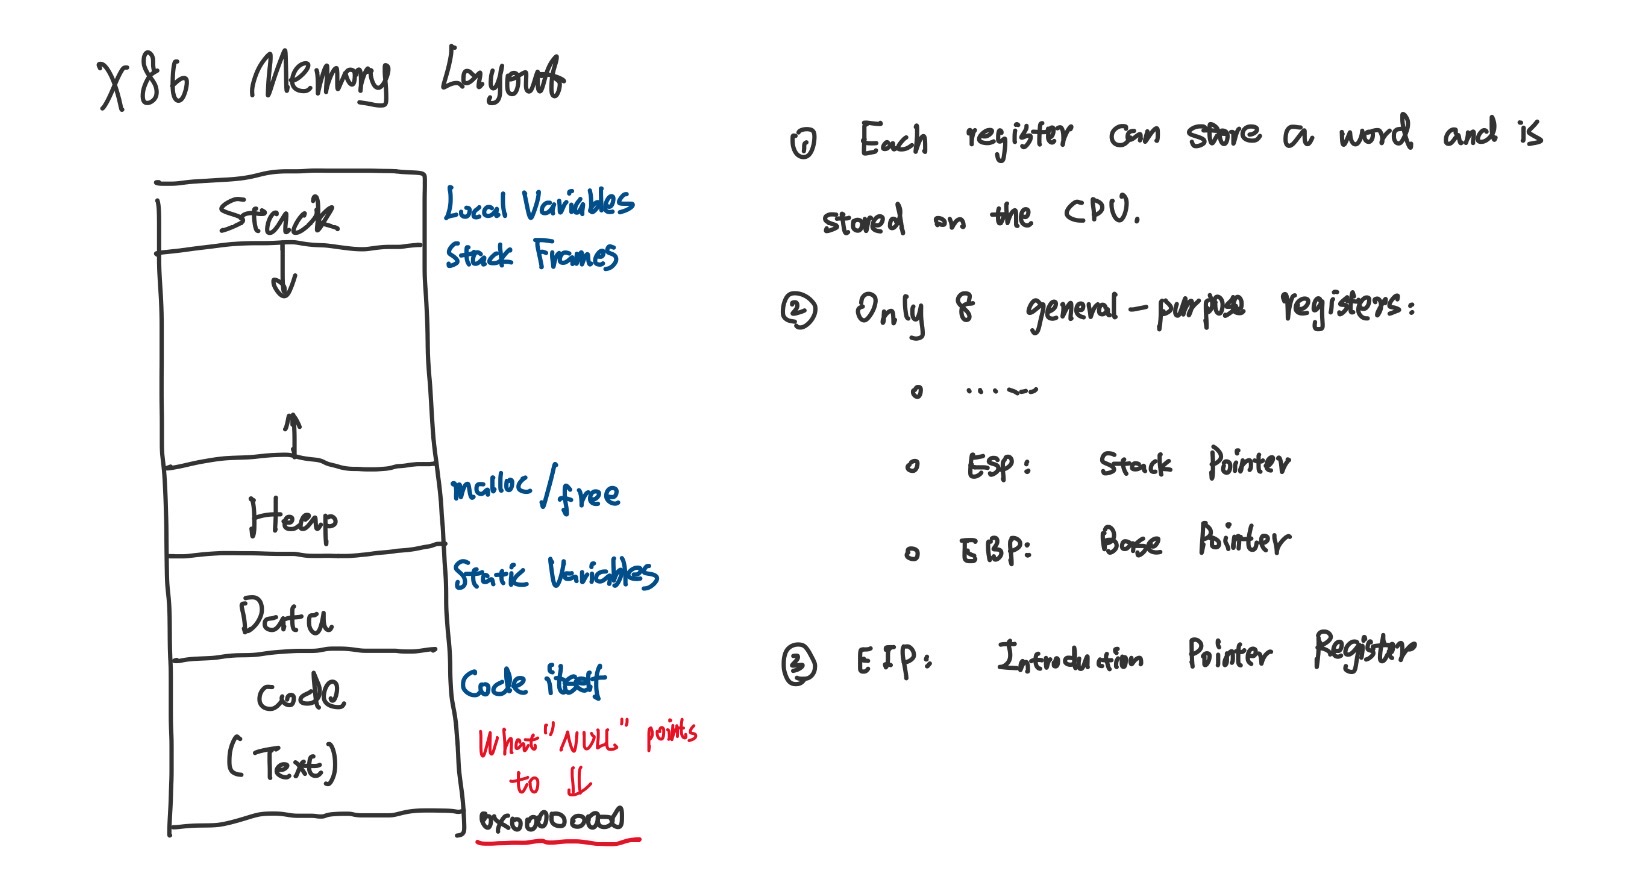 X86 Memory Layout
Stack
Local Variables
Stack Frames
Heap
malloc/free
Data
Static Variables
Code
(Text)
Code itself
What "NULL" points
to ⇓
0x00000000
① Each register can store a word and is
stored on the CPU.
② Only 8 general-purpose registers:
∘ ......
∘ ESP: Stack Pointer
∘ EBP: Base Pointer
③ EIP: Introduction Pointer Register